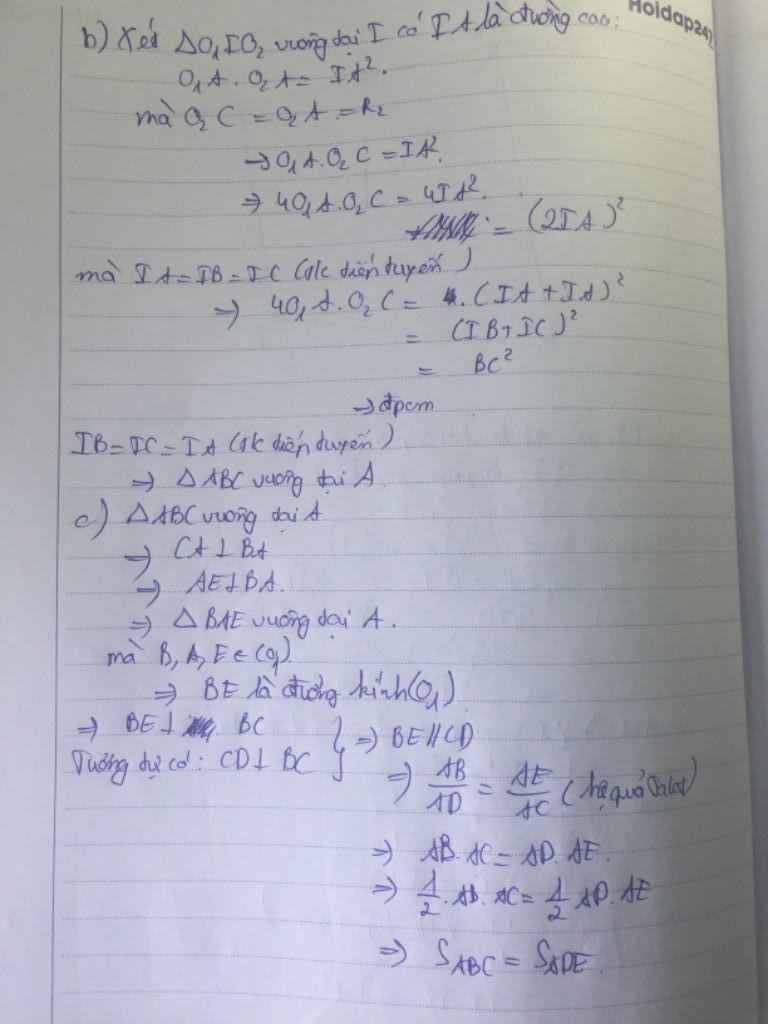 Hoidap247
b) Xét ΔO₁IO₂ vuông tại I có IA là đường cao:
O₁A.O₂A = IA².
mà O₂C = O₂A = R₂
→ O₁A.O₂C = IA².
⇒ 4O₁A.O₂C = 4IA².
= (2IA)²
mà IA = IB = IC (t/c tiếp tuyến)
⇒ 4O₁A.O₂C = (IA + IA)²
= (IB + IC)²
= BC²
→ đpcm
IB = IC = IA (t/c tiếp tuyến)
⇒ Δ ABC vuông tại A
c) Δ ABC vuông tại A
⇒ CA ⊥ BA
⇒ AE ⊥ BA.
⇒ Δ BAE vuông tại A.
mà B, A, E ∈ (O₁)
⇒ BE là đường kính (O₁)
⇒ BE ⊥ BC } ⇒ BE // CD
Tương tự có: CD ⊥ BC
⇒ AB/AD = AE/AC (hệ quả Talet)
⇒ AB.AC = AD.AE.
⇒ 1/2.AB.AC = 1/2 AD.AE
⇒ S_ABC = S_ADE.